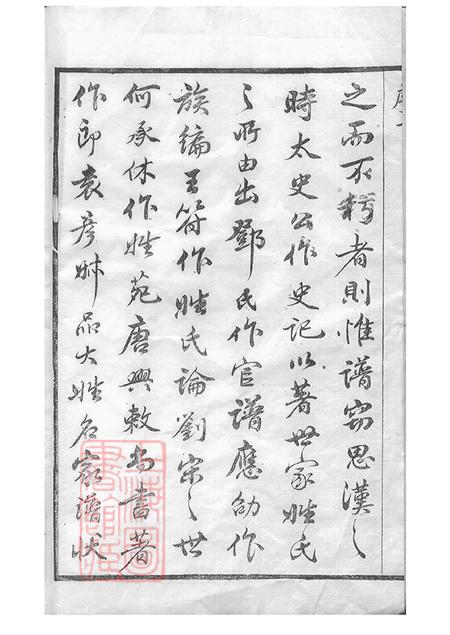 之而不朽者則惟譜竊思漢之
時太史公作史記以著世家姓氏
之所由出鄧氏作官譜應劭作
族編王符作姓氏論劉宋之世
何承休作姓苑唐興敕尚書著
作郎袁彥昧品大姓名家譜狀